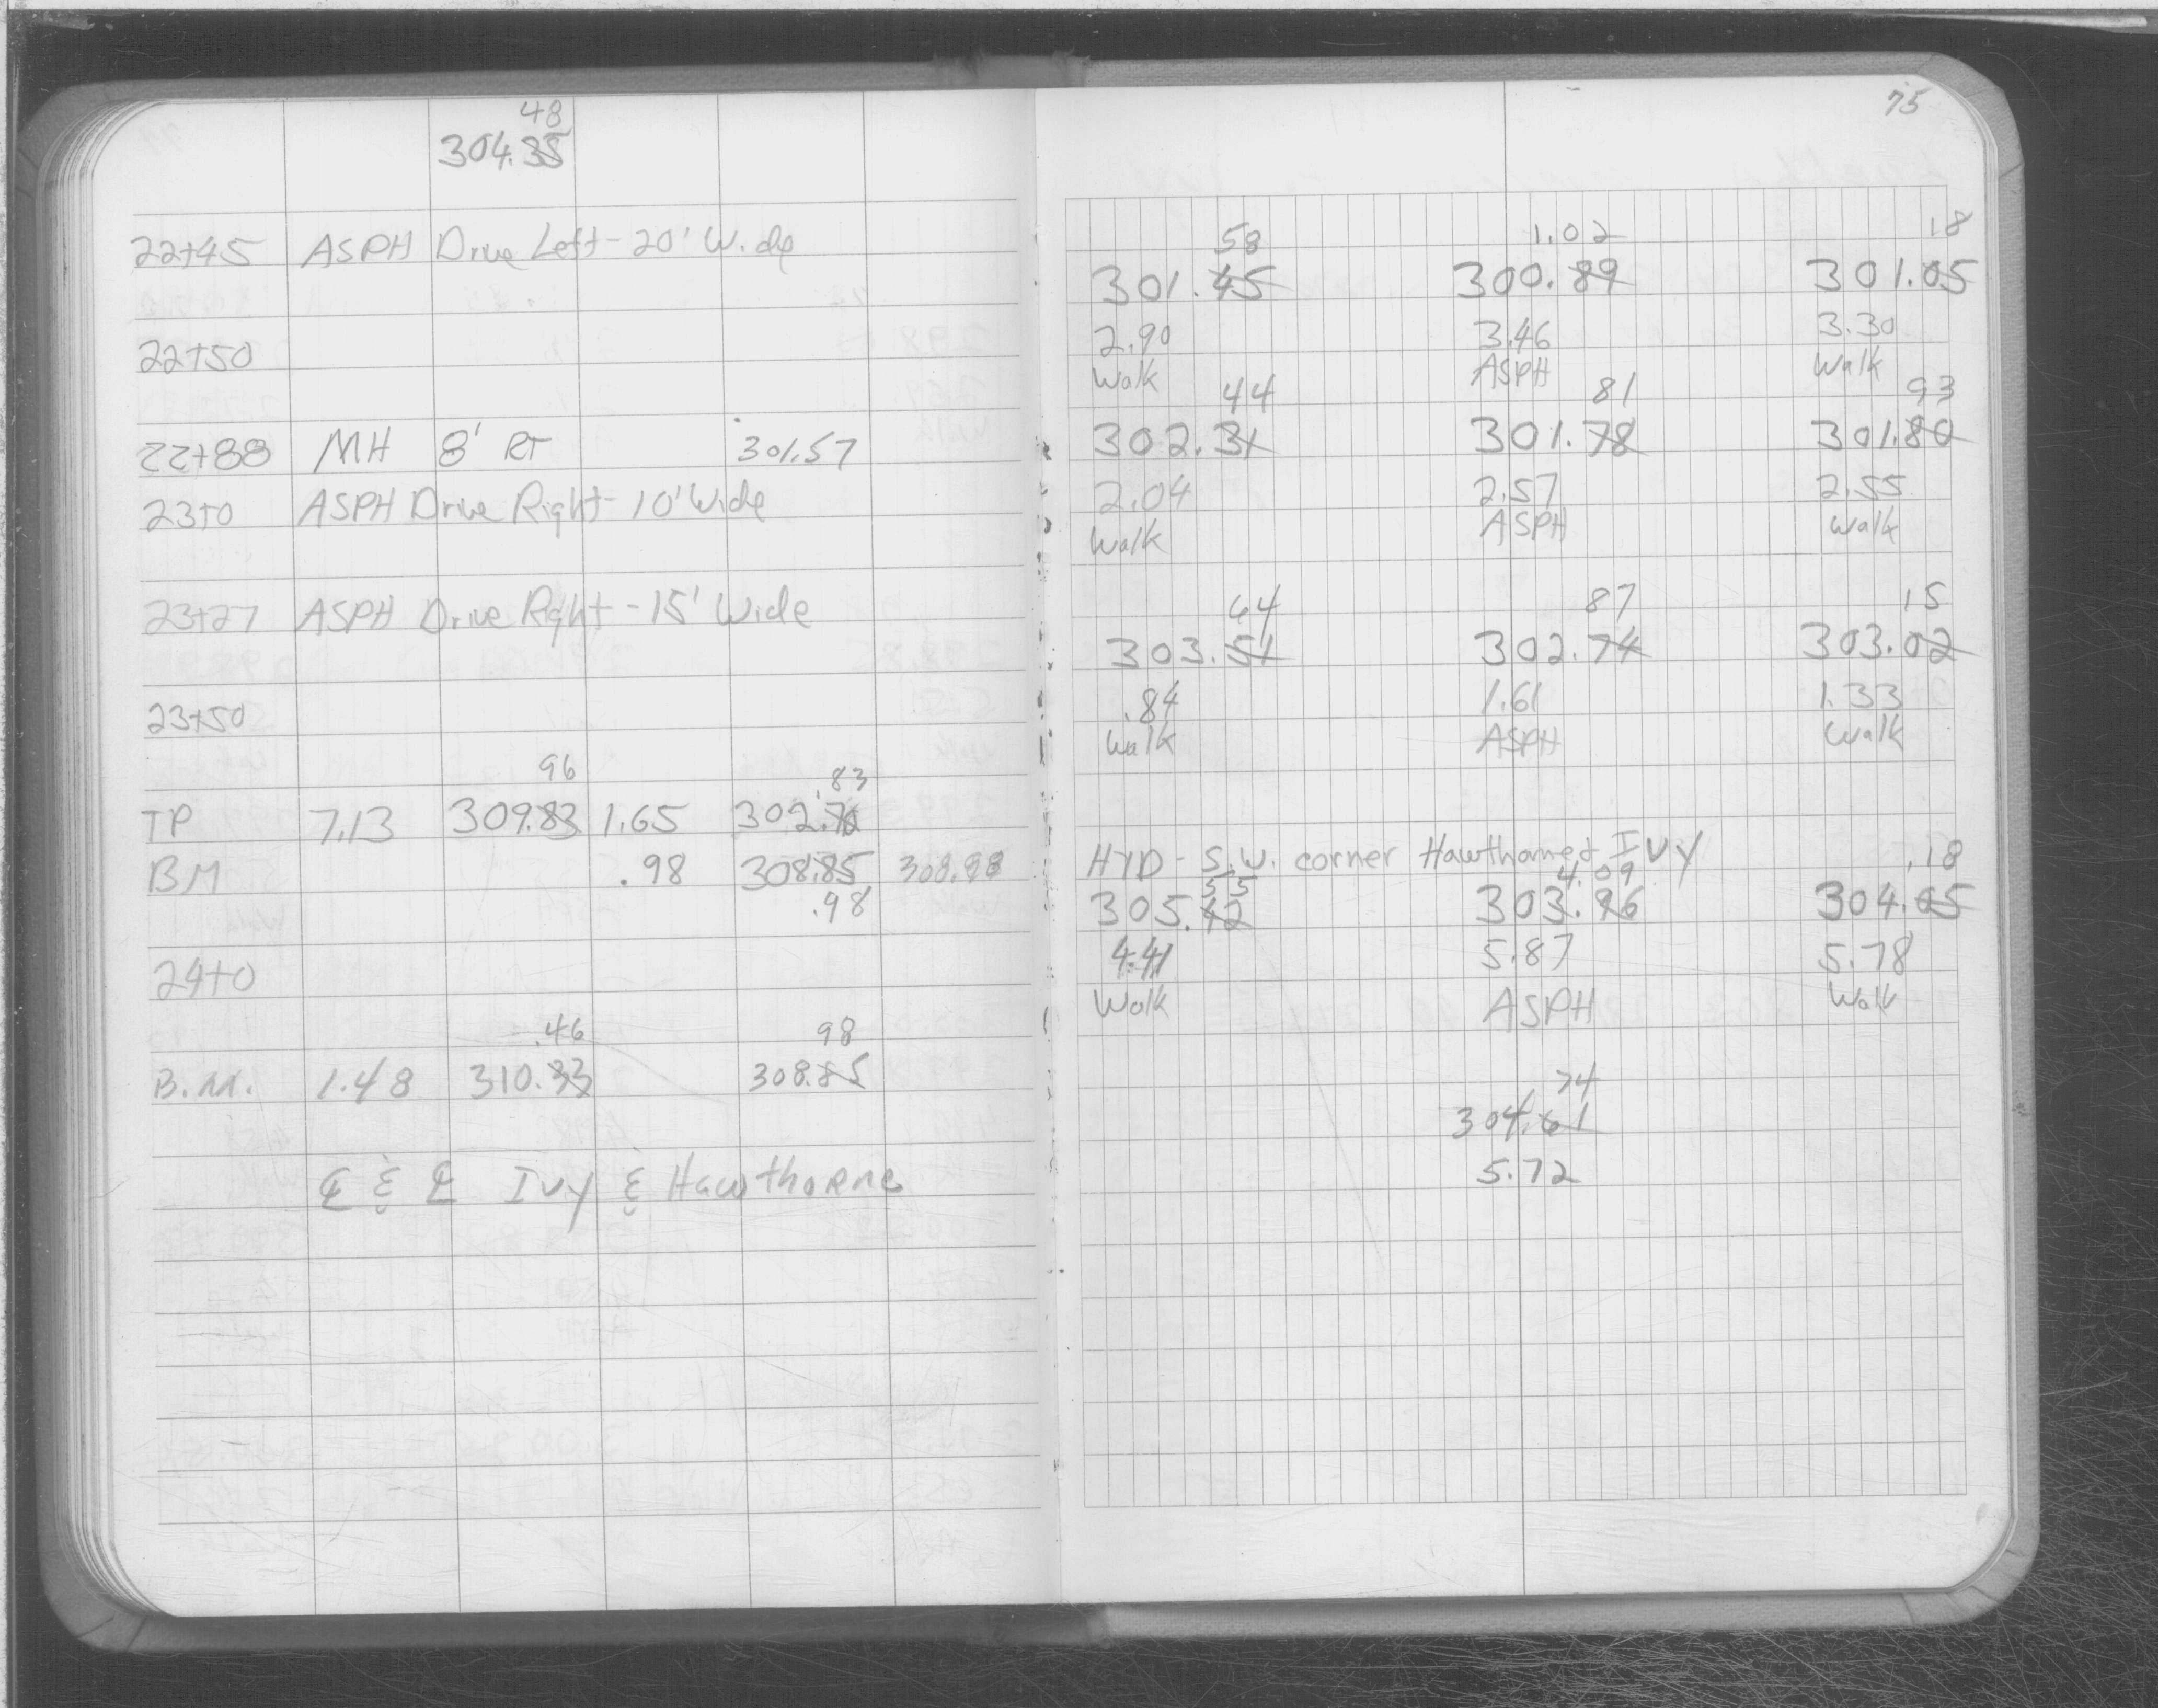 48
304.35
22+45 ASPH Drive Left - 20' Wide
22+50
22+88 MH 8' RT 301.57
23+0 ASPH Drive Right - 10' Wide
23+27 ASPH Drive Right - 15' Wide
23+50
96 .83
TP 7.13 309.83 1.65 302.70
BM .98 308.85 308.98
.98
24+0
.46 98
B.M. 1.48 310.33 308.85
℄ & ℄ Ivy & Hawthorne
75
58 1.02 18
301.45 300.89 301.05
2.90 3.46 3.30
Walk ASPH Walk
44 81 93
302.31 301.78 301.80
2.04 2.57 2.55
Walk ASPH Walk
64 87 15
303.51 302.74 303.02
.84 1.61 1.33
Walk ASPH Walk
HYD - S.W. corner Hawthorne & Ivy
55 4.09 .18
305.42 303.96 304.05
4.41 5.87 5.78
Walk ASPH Walk
74
304.61
5.72